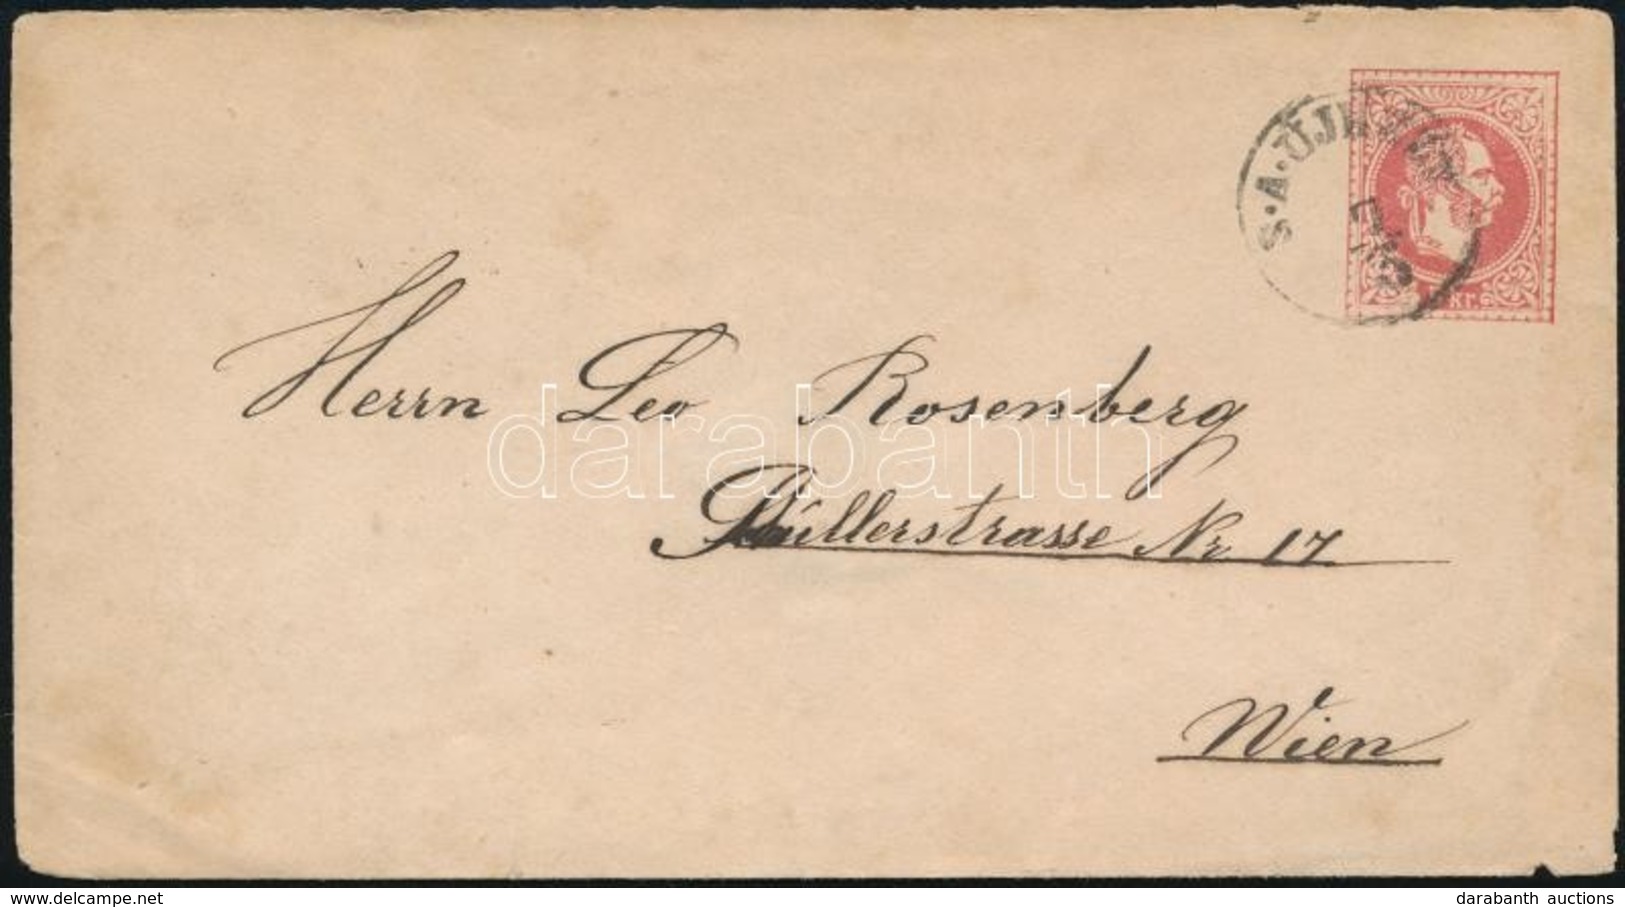 S·A·ÚJH
kr.
Herrn Leo Rosenberg
darabanth
Müllerstrasse Nr 17
Wien
www.delcampe.net
darabanth auctions